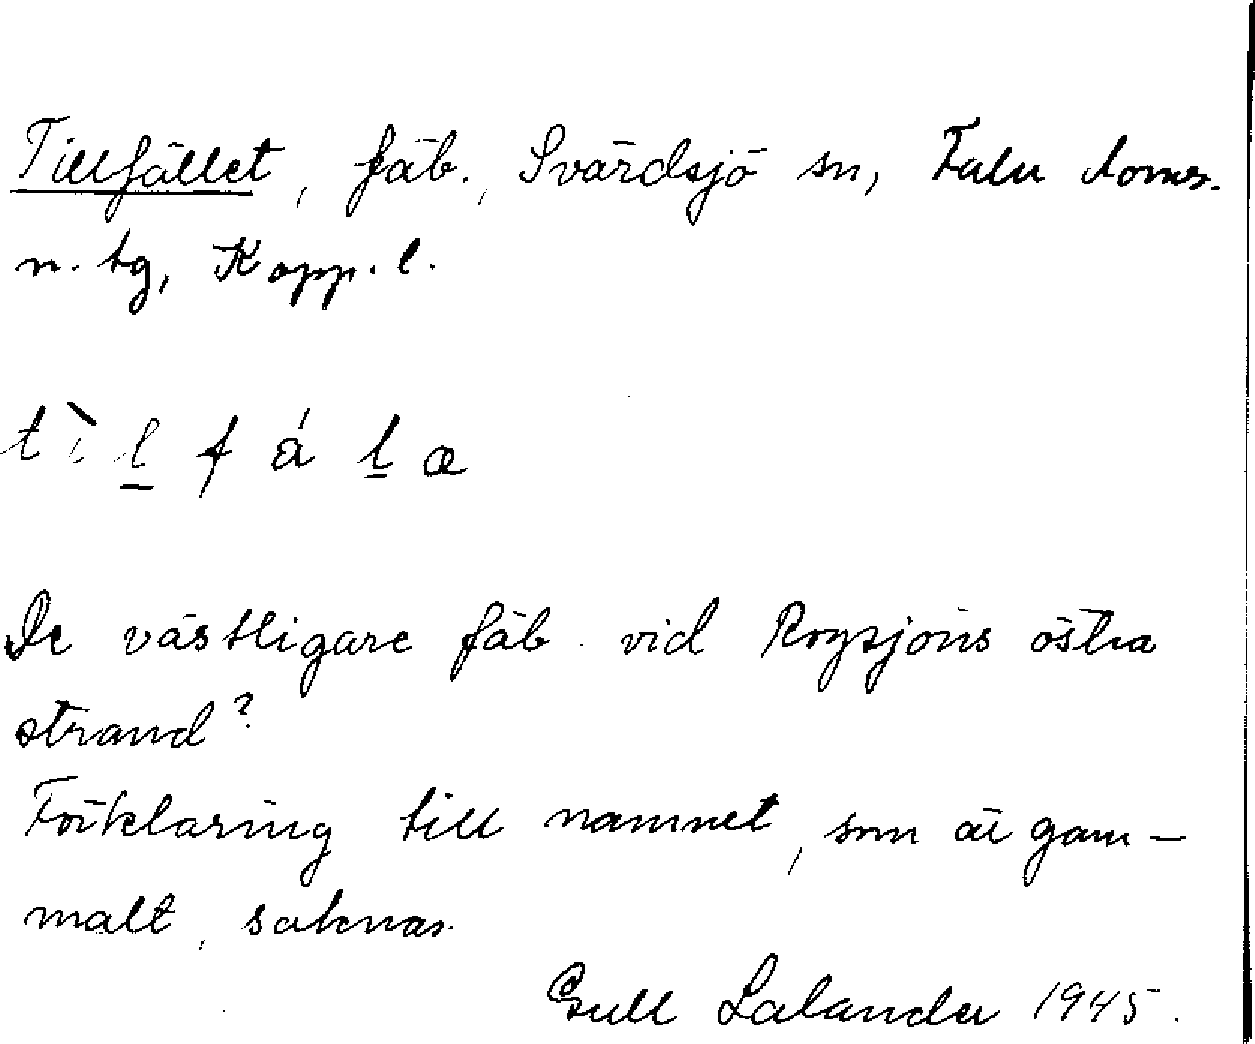 Tillfället, fäb., Svärdsjö sn, Falu doms.
n. tg, Kopp. l.
tìl̠fál̠æ
De västligare fäb. vid Rogsjöns östra
strand?
Förklaring till namnet, som är gam-
malt, saknas.
Gull Lalander 1945.